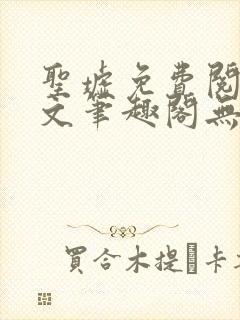 聖墟免費閱
文筆趣閣無
買合木提·卡